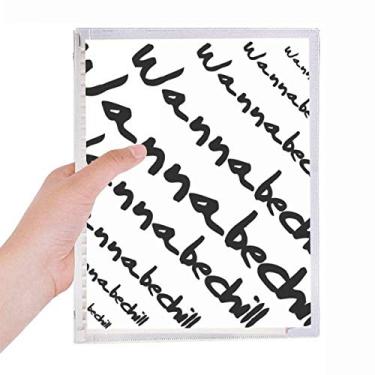 Wanna
Wannabe
Wannabechill
Wannabechill
Wannabechill
Wannabechill
annabechill
annabechill